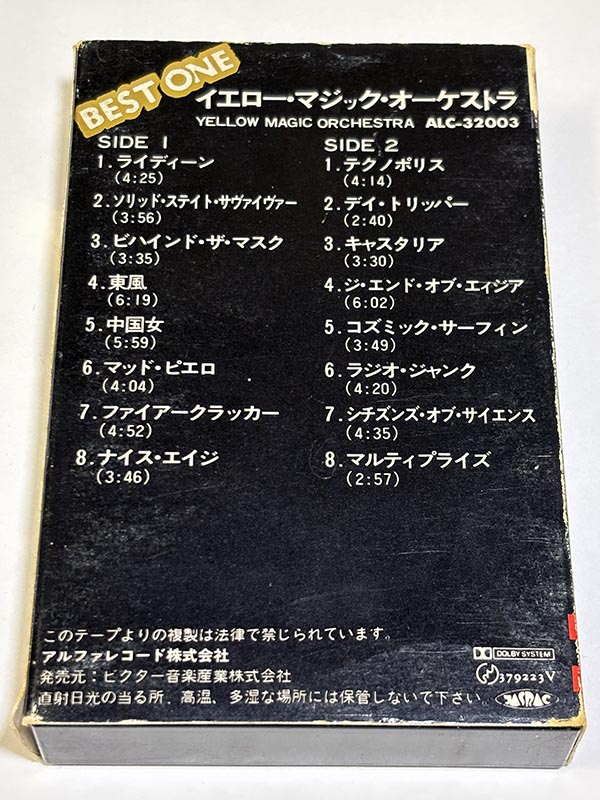 BEST ONE
イエロー・マジック・オーケストラ
YELLOW MAGIC ORCHESTRA ALC-32003
SIDE 1
1.ライディーン
(4:25)
2.ソリッド・ステイト・サヴァイヴァー
(3:56)
3.ビハインド・ザ・マスク
(3:35)
4.東風
(6:19)
5.中国女
(5:59)
6.マッド・ピエロ
(4:04)
7.ファイアークラッカー
(4:52)
8.ナイス・エイジ
(3:46)
SIDE 2
1.テクノポリス
(4:14)
2.デイ・トリッパー
(2:40)
3.キャスタリア
(3:30)
4.ジ・エンド・オブ・エィジア
(6:02)
5.コズミック・サーフィン
(3:49)
6.ラジオ・ジャンク
(4:20)
7.シチズンズ・オブ・サイエンス
(4:35)
8.マルティプライズ
(2:57)
このテープよりの複製は法律で禁じられています。
アルファレコード株式会社
発売元:ビクター音楽産業株式会社
直射日光の当る所、高温、多湿な場所には保管しないで下さい。
DOLBY SYSTEM
379223V
JASRAC